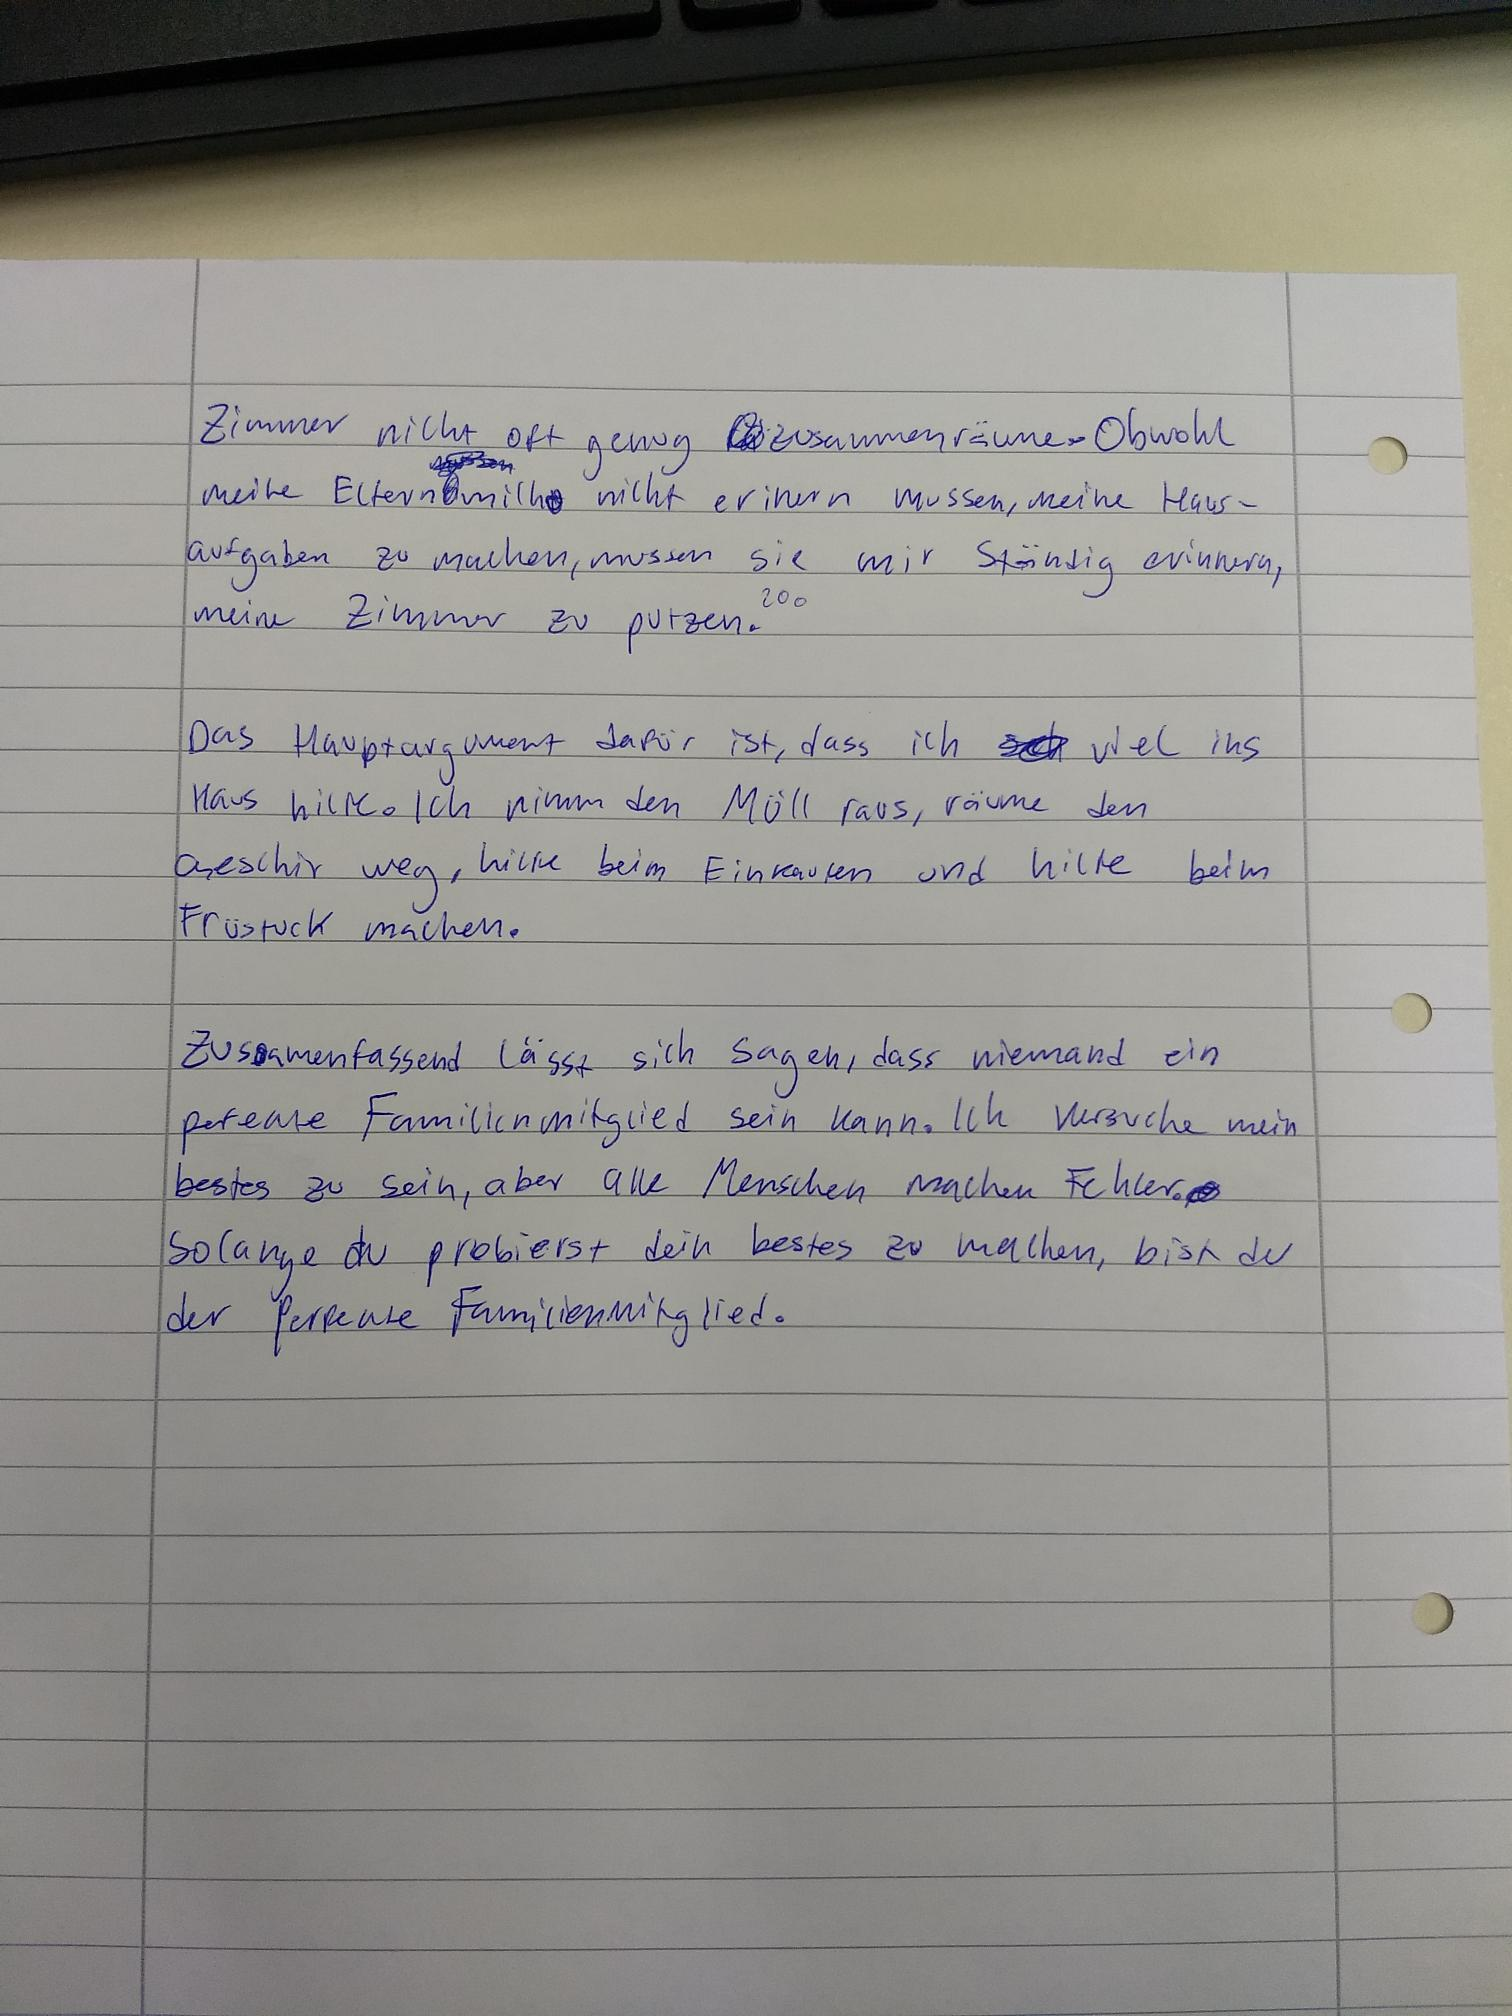 Zimmer nicht oft genug zusammenräume. Obwohl
meine Eltern mich nicht erinern mussen, meine Haus-
aufgaben zu machen, mussen sie mir Ständig erinnern,
meine Zimmer zu putzen. 200
Das Hauptargument dafür ist, dass ich viel ins
Haus hilfe. Ich nimm den Müll raus, räume den
Geschir weg, hilfe beim Einkaufen und hilfe beim
Früstuck machen.
Zusamenfassend lässt sich sagen, dass niemand ein
perfekte Familienmitglied sein kann. Ich versuche mein
bestes zu sein, aber alle Menschen machen Fehler.
Solange du probierst dein bestes zu machen, bist du
der Perfekte Familienmitglied.